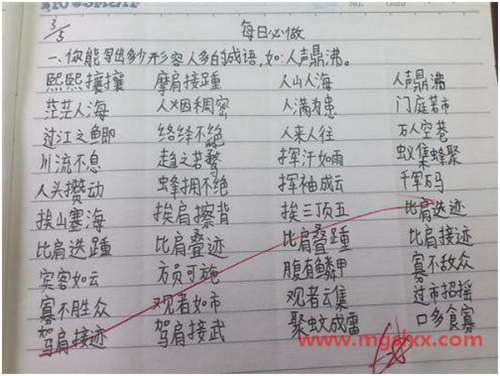 3/5
每日必做
一、你能写出多少形容人多的成语，如：人声鼎沸。
熙熙攘攘 摩肩接踵 人山人海 人声鼎沸
茫茫人海 人烟稠密 人满为患 门庭若市
过江之鲫 络绎不绝 人来人往 万人空巷
川流不息 趋之若鹜 挥汗如雨 蚁集蜂聚
人头攒动 蜂拥不绝 挥袖成云 千军万马
挨山塞海 挨肩擦背 挨三顶五 比肩迭迹
比肩迭踵 比肩叠迹 比肩叠踵 比肩接迹
宾客如云 方员可施 腹有鳞甲 寡不敌众
寡不胜众 观者如市 观者云集 过市招摇
驾肩接迹 驾肩接武 聚蚊成雷 口多食寡
www.mgslxx.com